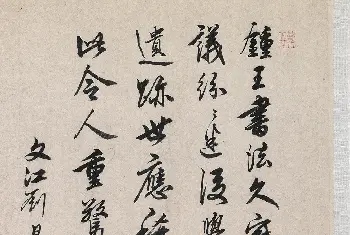 鍾王書法久
議紛〻送後
遺跡世應
此令人重驚
文江劉